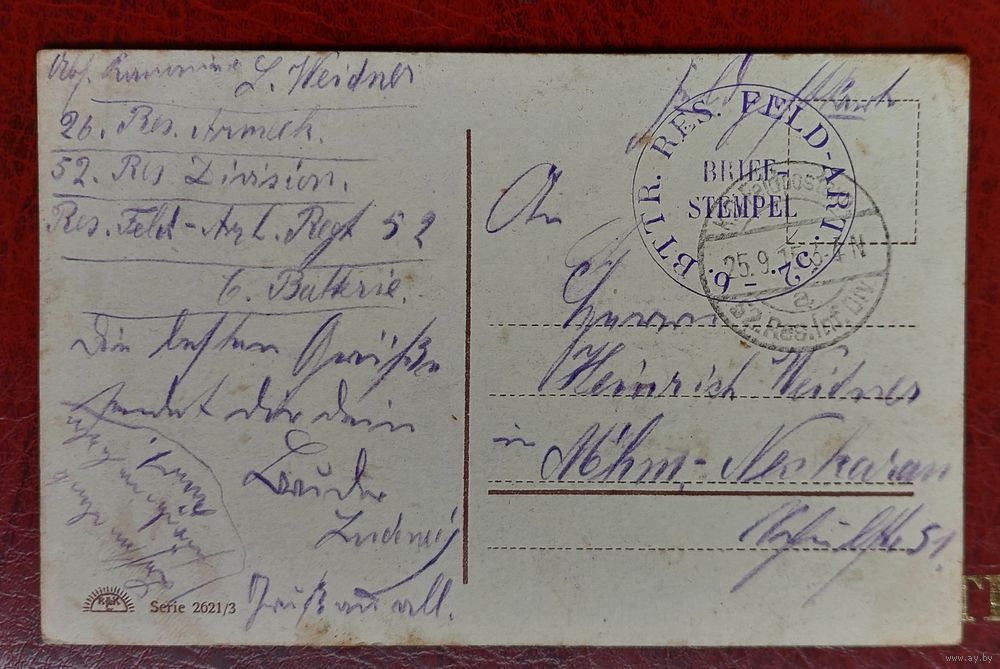 Abs. Kanonier L. Weidner
26. Res. Armeek.
52. Res. Division.
Res. Feld-Art. Regt 52
6. Batterie.
Die besten Grüße
sendet dir dein
Bruder
Ludwig
Gruß an all.
Serie 2621/3
Feldpostkarte
6. BTTR. RES. FELD-ART. 52.
BRIEF-
STEMPEL
25.9.15. 3-4 N
a
52. Res. Inf. Div.
An
Herrn
Heinrich Weidner
in Mhm.-Neckarau
Schulstr. 51.
www.ay.by